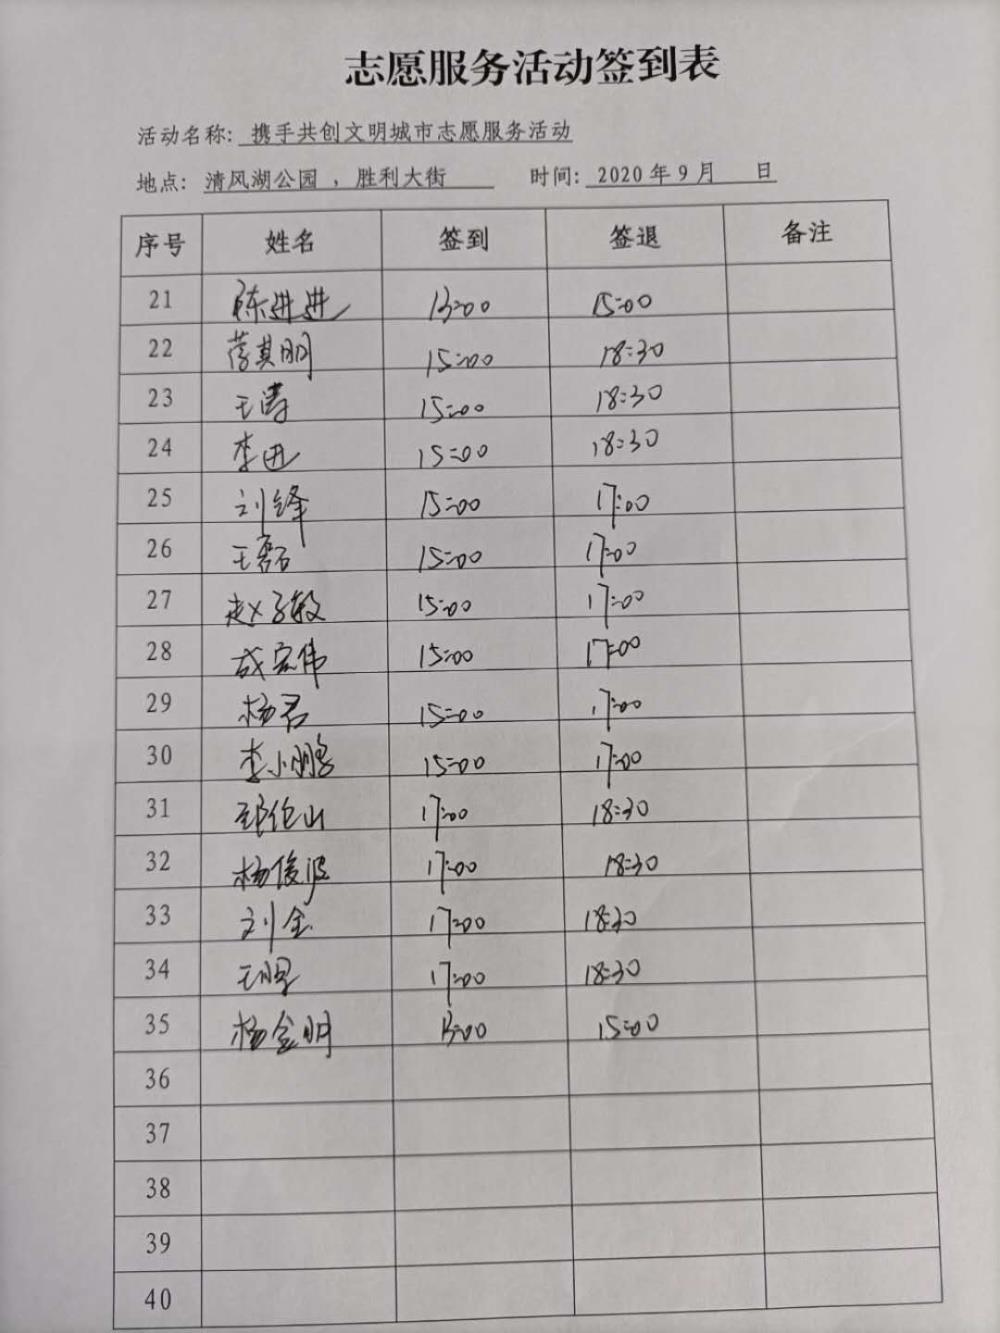 志愿服务活动签到表
活动名称: 携手共创文明城市志愿服务活动
地点: 清风湖公园 , 胜利大街 时间: 2020 年 9 月 日
序号 姓名 签到 签退 备注
21 陈进进 13:00 15:00
22 莫明 15:00 18:30
23 王涛 15:00 18:30
24 李进 15:00 18:30
25 刘锋 15:00 17:00
26 王磊 15:00 17:00
27 赵子毅 15:00 17:00
28 成宏伟 15:00 17:00
29 杨君 15:00 17:00
30 李小鹏 15:00 17:00
31 山 17:00 18:30
32 杨俊波 17:00 18:30
33 刘金 17:00 18:30
34 王 17:00 18:30
35 杨金明 13:00 15:00
36
37
38
39
40